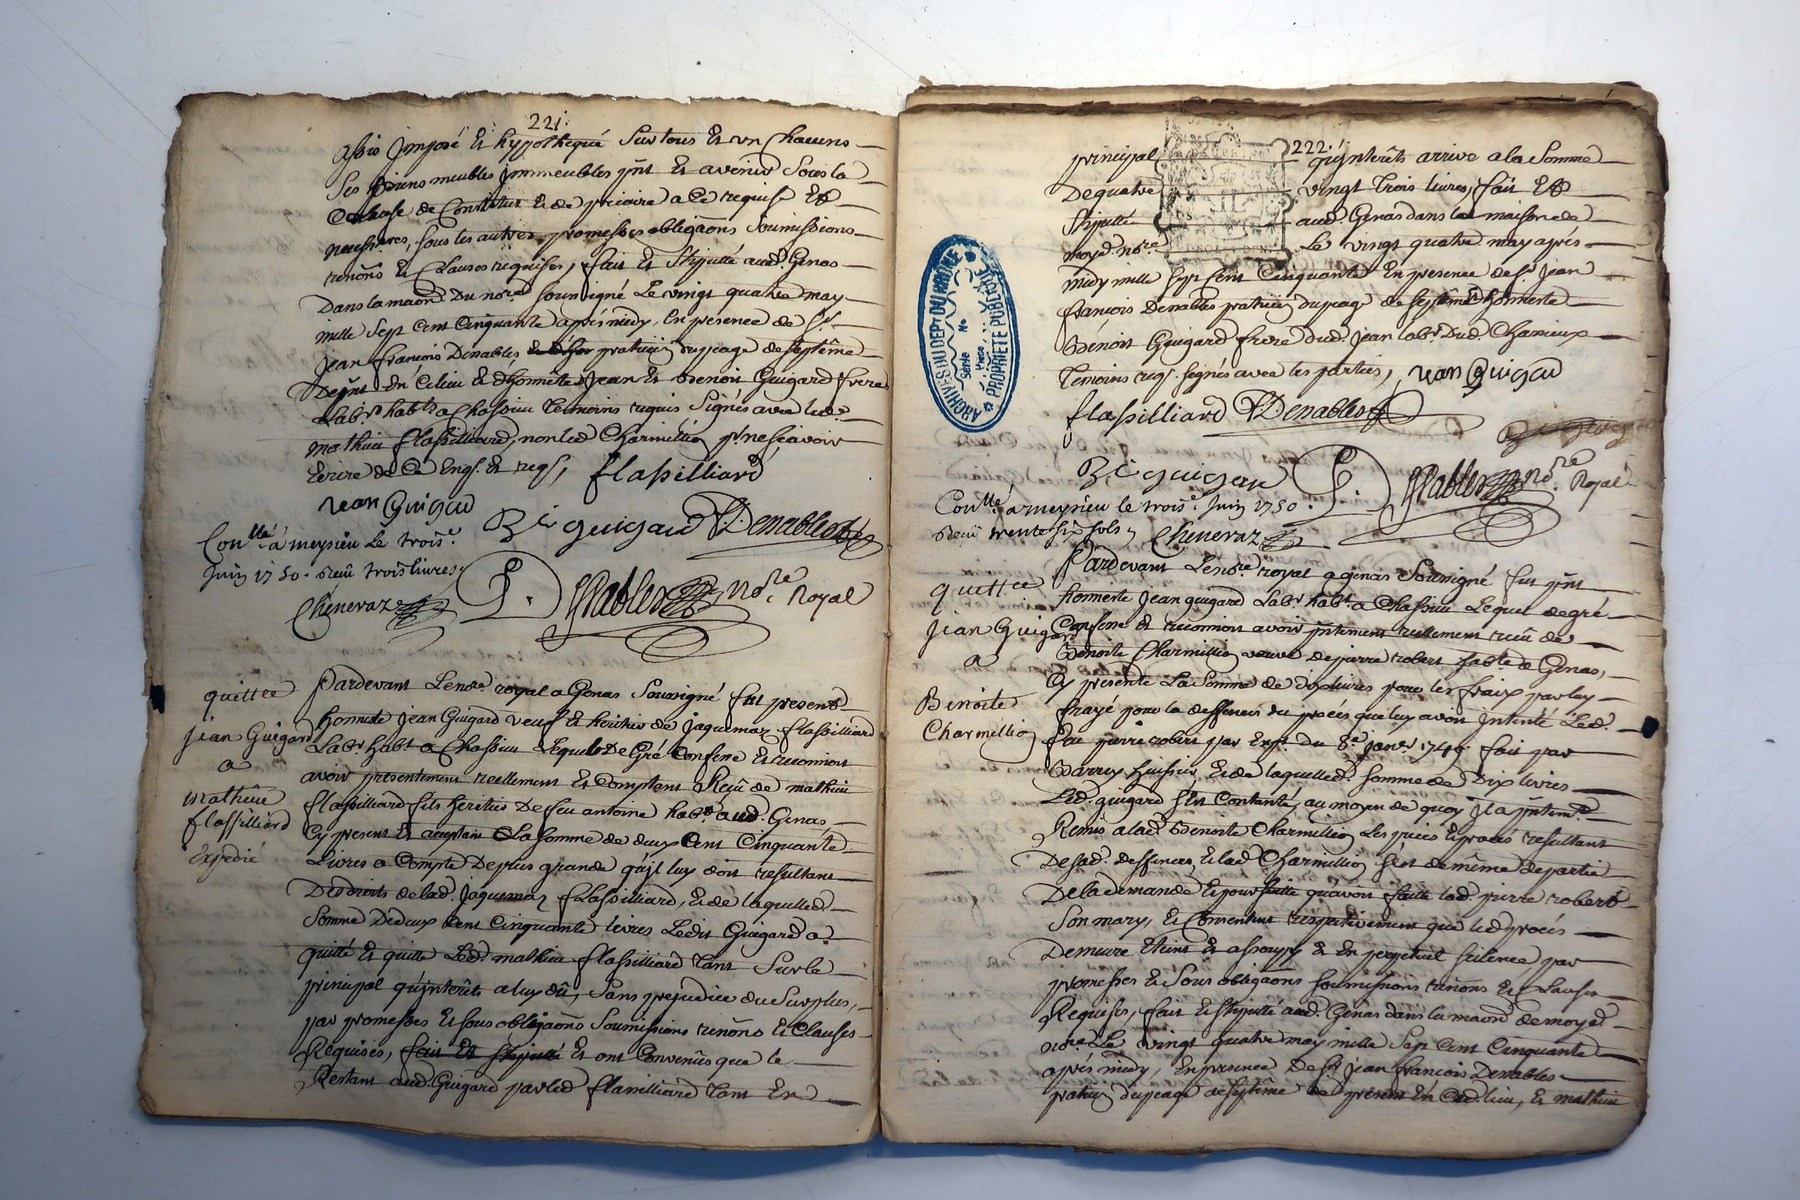 221.
assis imposé et hypothequé sur tous et un chacuns
ses biens meubles immeubles pnt et avenir sous la
clause de constitut et de precaire a ce requise et
necessaires, sous les autres promesses obligaons soumissions
renons et clauses requises, fait et stipullé aud. Genas
dans la maon du nore soussigné le vingt quatre may
mille sept cent cinquante après midy, en presence de Sr.
jean françois Denables praticien du peage de septême
de pnt en ce lieu et d'honnetes Jean et Benoit Guigard freres
Labrs habts a Chassieu temoins requis signés avec led.
mathieu flassilliard, non led Charmillio pr ne sçavoir
écrire de ce enqs. et reqs,
flassilliard
jean Guigard
B guigard Denables
Conllé. a meysieu le trois.e
Juin 1750. reçu trois livres
Cheneraz
P. Pables nore Royal
quittce
jean Guigard
a
mathieu
flassilliard
Expedié
Pardevant Le nore royal a Genas soussigné fut present
honneste jean Guigard veuf et heritier de Jaquemaz flassilliard
Labr habt a Chassieu Lequel de Gré Confesse et reconnoit
avoir presentement reellement et comptant Reçu de mathieu
flassilliard fils heritier de feu antoine habt aud. Genas
Cy present et acceptant La somme de deux Cent Cinquante
Livres a Compte de plus grande qu'il luy doit resultant
Des droits de lad. Jaquemaz flassilliard, et de laquelle d.
somme de deux Cent Cinquante livres Ledit Guigard a
quitté et quitte Led. mathieu flassilliard tant sur le
principal qu'interêts a luy dû, sans prejudice du surplus,
par promesses et sous obligaons soumissions renons et Clauses
Requises, fait et stipullé et ont convenus que le
Restant aud. Guigard par led flassilliard tant en
222.
principal qu'interêts arrive a la somme
De quatre vingt trois livres, fait et
stipullé aud. Genas dans la maison de
moyd. nore Le vingt quatre may après
midy mille sept cent cinquante en presence de sr jean
françois Denables praticien du peage de septême et honneste
Benoit Guigard frere dud. jean labr. dud. Chassieux
temoins reqs. signés avec les parties,
jean Guigard
flassilliard Denables
B guigard P. Pables nore Royal
Conllé. a meysieu le trois.e Juin 1750.
Reçu trente six sols,
Cheneraz
ARCHIVES DU DEPT DU RHÔNE
PROPRIÉTÉ PUBLIQUE
quittce
jean Guigard
a
Benoite
Charmillio
Pardevant Le nore royal a genas Soussigné fut pnt
honneste jean guigard Labr habt. a Chassieu Lequel de gré
Confesse et reconnoit avoir pntement reellement reçu de
Benoite Charmillio veuve de pierre robert habte a Genas,
Cy presente La somme de dix livres pour les fraix par luy
frayé pour la deffence du procès que luy avoit intenté Led.
feu pierre robert par Expt. du 8e janer 1749 fait par
Barrey huissier, et de laquelle d. somme de Dix livres
Led. guigard s'est Contenté, au moyen de quoy il a pntemt.
Remis a lad. Benoite Charmillio Les pieces et procès resultant
De sad. deffences, et lad. Charmillio s'est de même departie
De la demande et poursuitte qu'avoit faitte led. pierre robert
Son mary, et Consentent respectivement que led procès
Demeure éteint et assoupy et en perpetuel silence par
promesses et sous obligaons soumissions renons et Clauses
Requises, fait et stipullé aud. Genas dans la maon de moyd.
nore Le vingt quatre may mille Sept Cent Cinquante
après midy, en presence de sr jean françois Denables
praticien du peage de septême de present en Ced. lieu, et mathieu